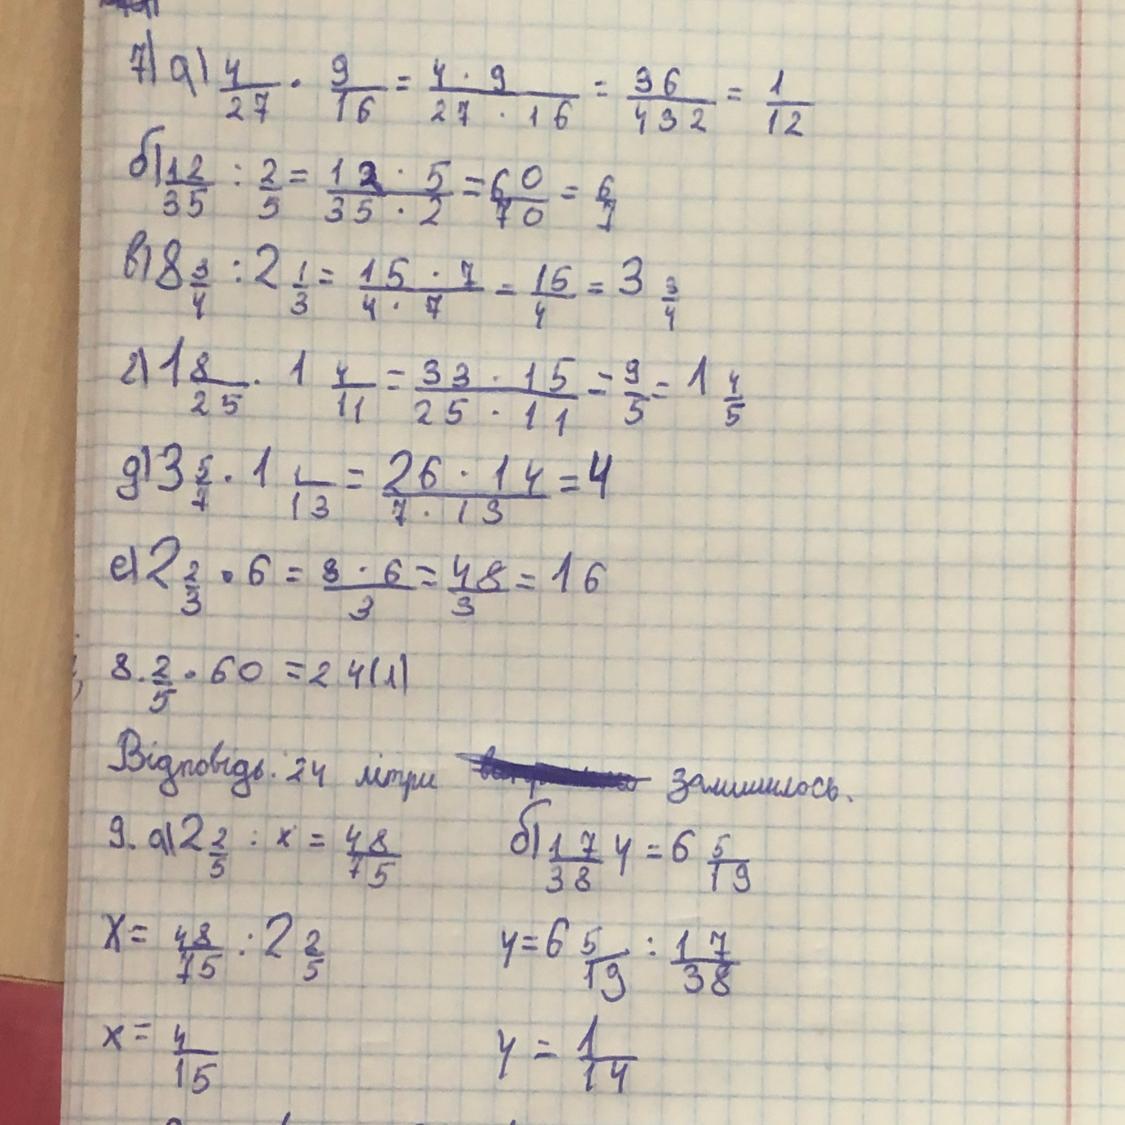 7) а) 4/27 · 9/16 = 4 · 9 / 27 · 16 = 36/432 = 1/12
б) 12/35 : 2/5 = 12 · 5 / 35 · 2 = 60/70 = 6/7
в) 8 3/4 : 2 1/3 = 15 · 7 / 4 · 7 = 15/4 = 3 3/4
г) 1 8/25 · 1 4/11 = 33 · 15 / 25 · 11 = 9/5 = 1 4/5
д) 3 5/7 · 1 1/13 = 26 · 14 / 7 · 13 = 4
е) 2 2/3 · 6 = 8 · 6 / 3 = 48/3 = 16
8. 2/5 · 60 = 24 (л)
Відповідь: 24 літри залишилось.
9. а) 2 2/5 : x = 48/75
б) 17/38 y = 6 5/19
x = 48/75 : 2 2/5
y = 6 5/19 : 17/38
x = 4/15
y = 1/14